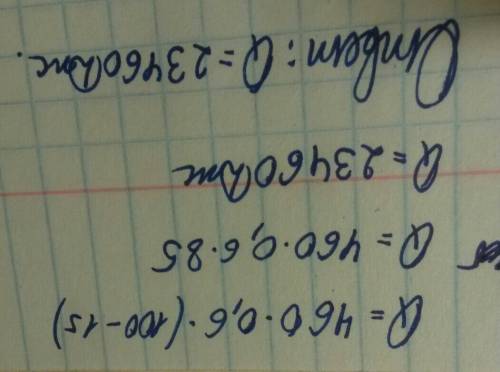 Q = 460 · 0,6 · (100 - 15)
Q = 460 · 0,6 · 85
Q = 23460 Дж
Ответ: Q = 23460 Дж.